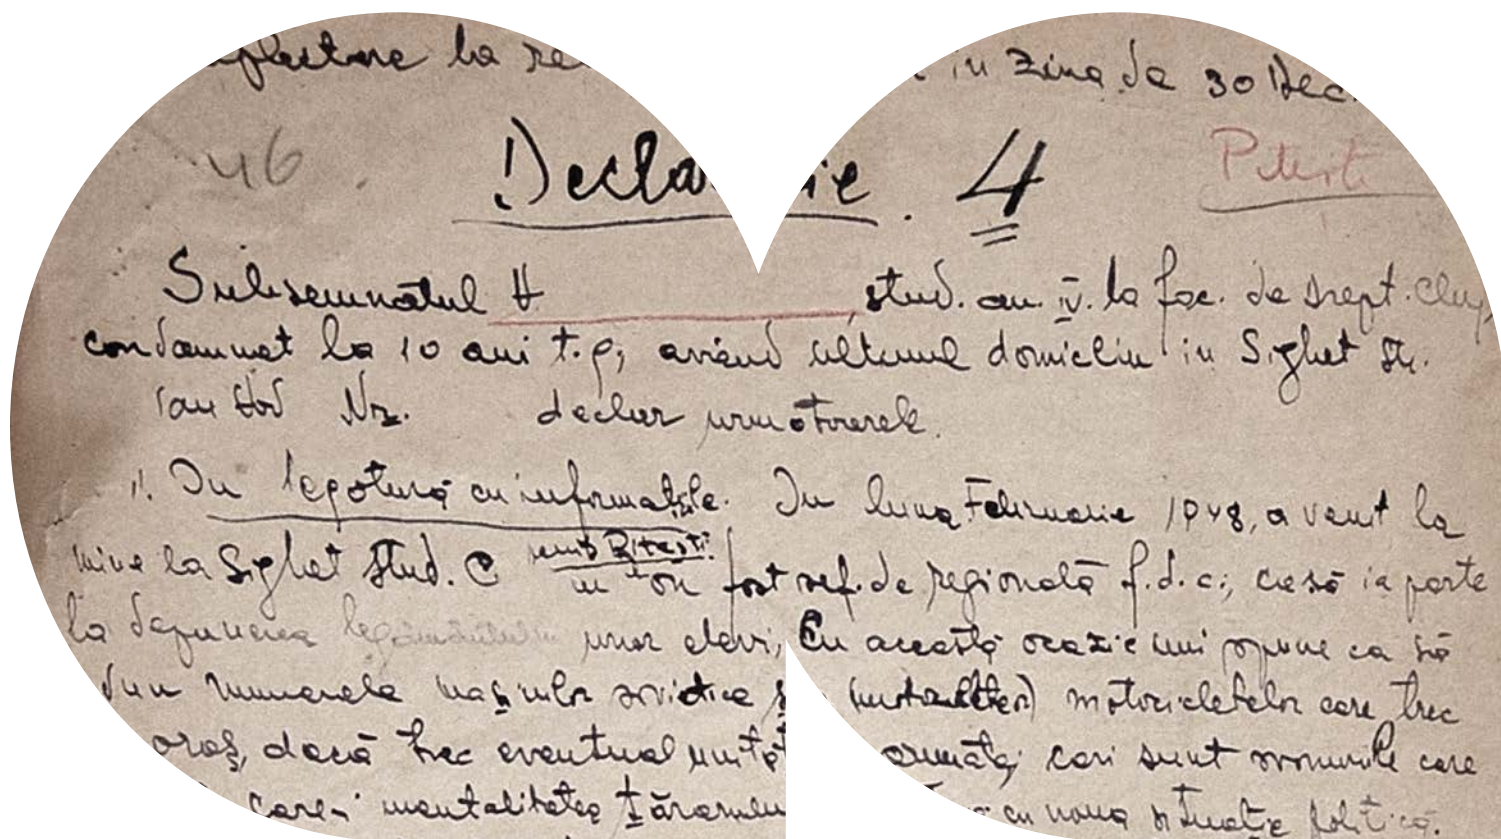 la re in Zina de 30 Dec.
46 Decla ie. 4 Pitesti
Subsemnatul H , stud. an. IV. la fac. de drept. Cluj,
condamnat la 10 ani t.g; avand ultimul domiciliu in Sighet str.
Ian Nr. declar urmatoarele.
1. In legătură cu informațiile. In luna Februarie 1948, a venit la
penit Pitesti.
mine la Sighet stud. C fost ref. de regională f.d.c.; ca să ia parte
la depunerea legământului unor elevi, Cu această ocazie imi spune ca să
dau numerele mașinilor sovietice motocicletelor care trec
oraș, dacă trec eventual unităt armată; cari sunt svonurile care
care-i mentalitatea țăranului cu noua situație politică